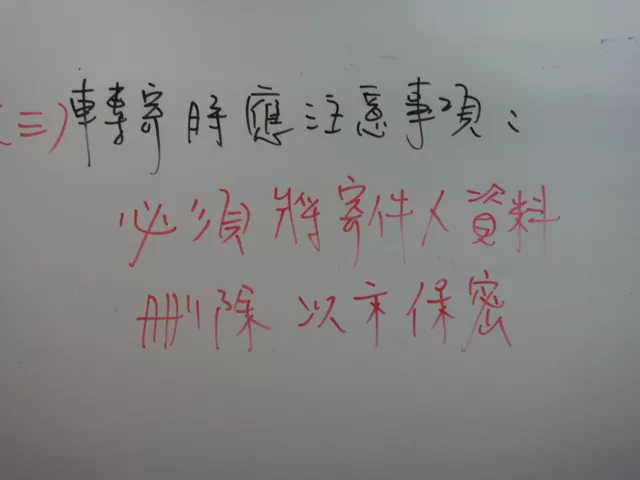 (三)轉寄時應注意事項:
必須將寄件人資料
刪除以示保密